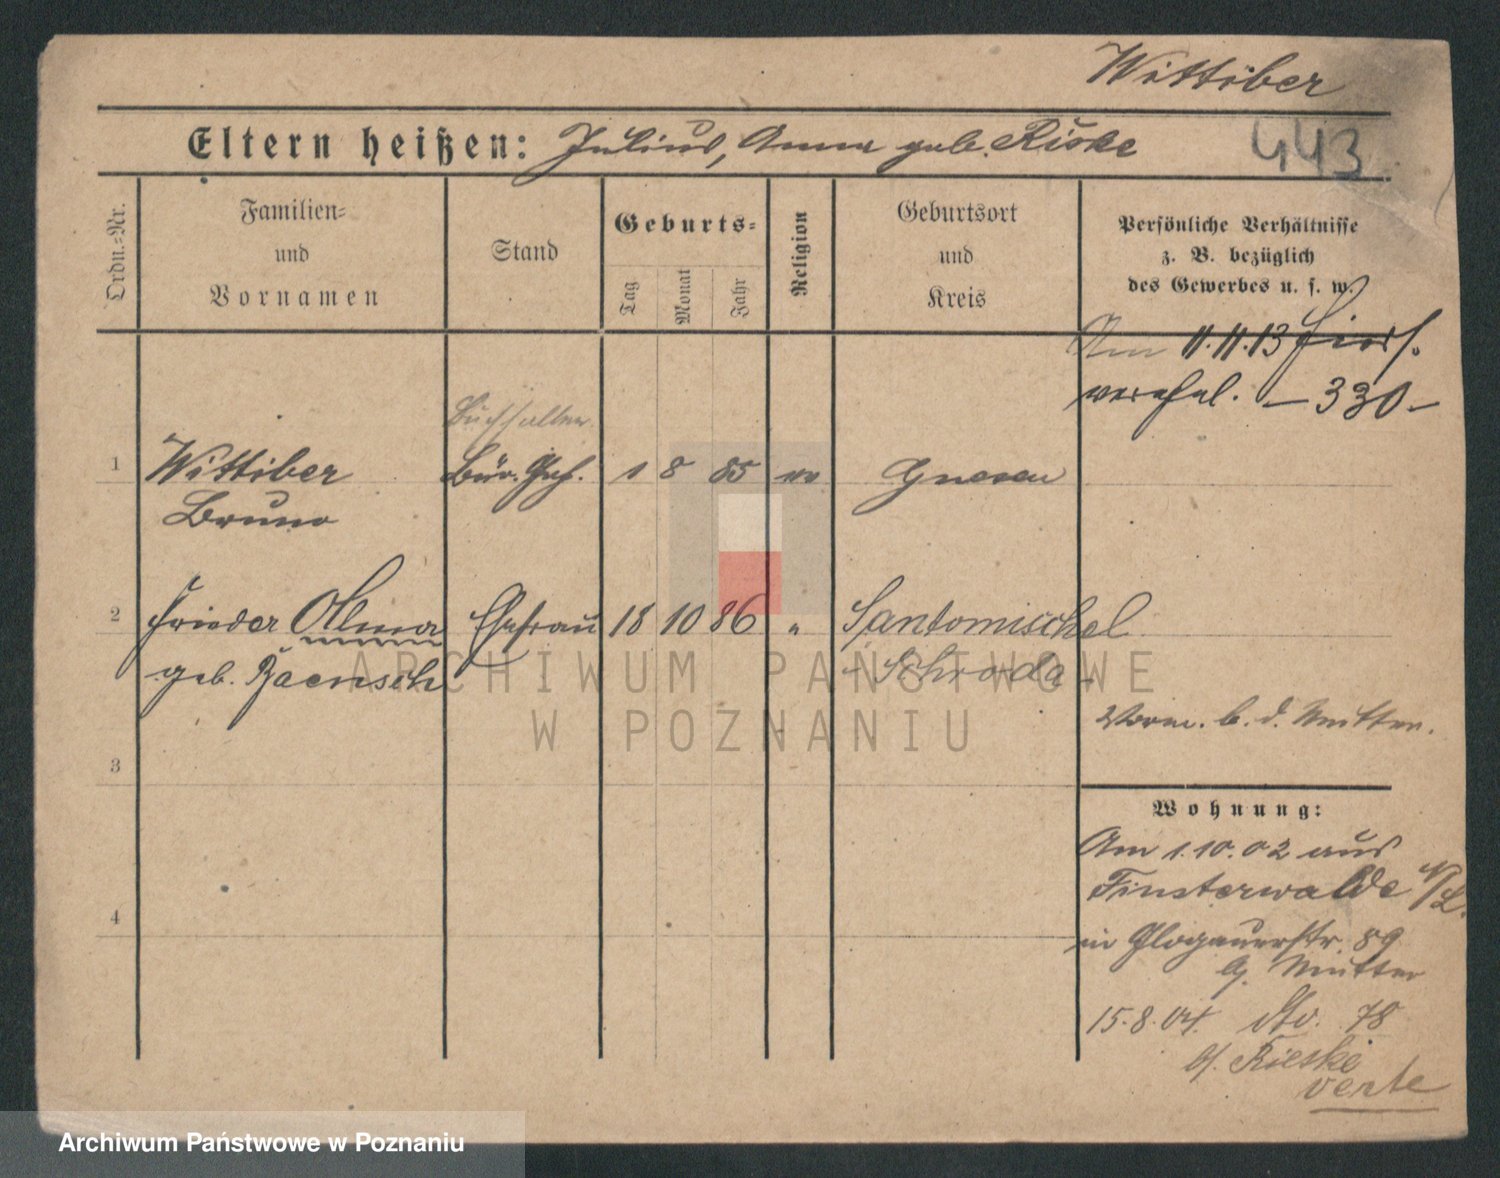 Wittiber
Eltern heißen: Julius, Anna geb. Riske
443
Ordn.-Nr.
Familien-
und
Vornamen
Stand
Geburts-
Tag
Monat
Jahr
Religion
Geburtsort
und
Kreis
Persönliche Verhältnisse
z. B. bezüglich
des Gewerbes u. s. w.
Am 11.11.13 hiers.
verehel. – 330 –
Buchhalter
1 Wittiber Bür. Geh. 1 8 85 ev Gnesen
Bruno
2 Frieder Olma Ehefrau 18 10 86 " Santomischel
geb. Baensch - Schroda -
ARCHIWUM PAŃSTWOWE
W POZNANIU
Vorm. b. d. Mutter.
3
Wohnung:
Am 1.10.02 aus
Finsterwalde N/L.
in Glogauerstr. 89
b/ Mutter
4
15.8.04. dto. 78
b/. Rieske
verte
Archiwum Państwowe w Poznaniu